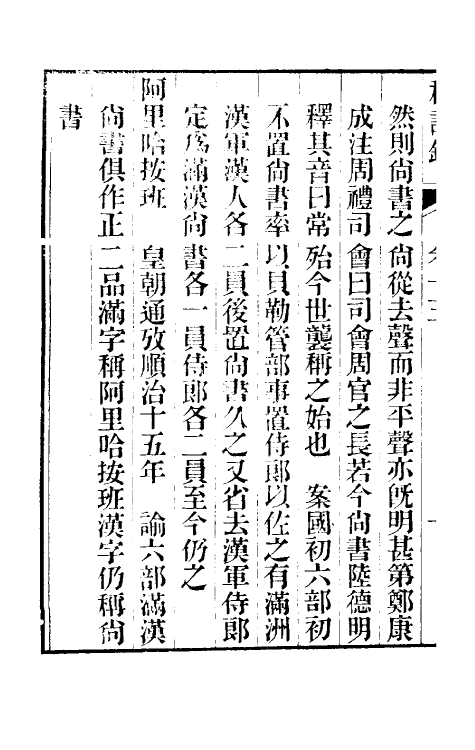 然則尙書之尙從去聲而非平聲亦旣明甚第鄭康
成注周禮司會曰司會周官之長若今尙書陸德明
釋其音曰常殆今世襲稱之始也　案國初六部初
不置尙書率以貝勒管部事置侍郞以佐之有滿洲
漢軍漢人各二員後置尙書久之又省去漢軍侍郞
定爲滿漢尙書各一員侍郞各二員至今仍之
阿里哈按班　皇朝通攷順治十五年　諭六部滿漢
尙書俱作正二品滿字稱阿里哈按班漢字仍稱尙
書